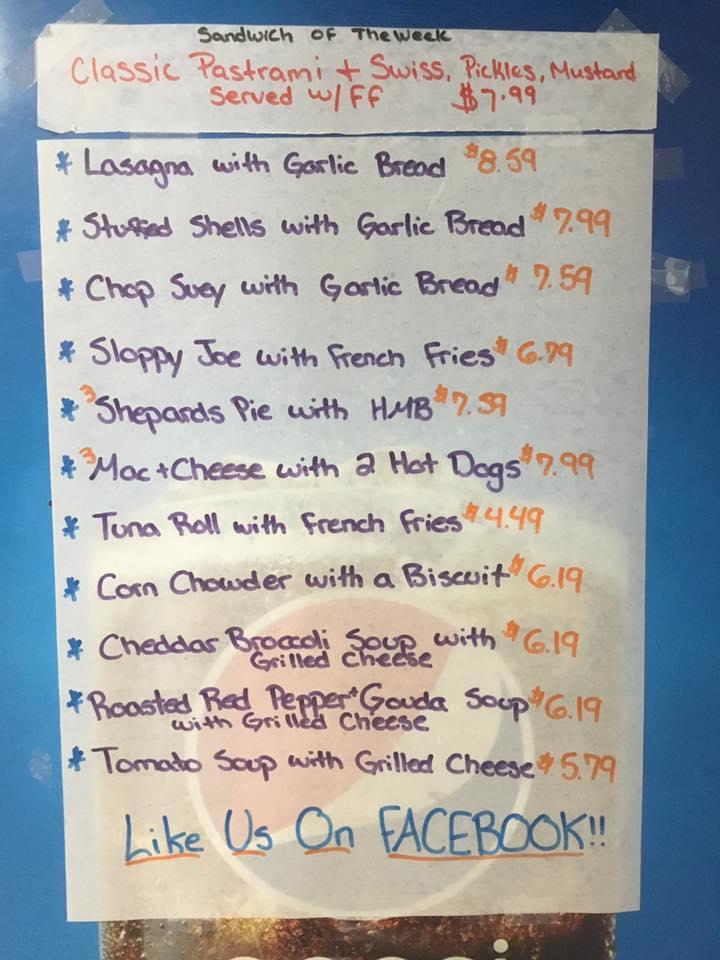 Sandwich Of The Week
Classic Pastrami + Swiss, Pickles, Mustard
Served w/ FF $7.99
* Lasagna with Garlic Bread $8.59
* Stuffed Shells with Garlic Bread $7.99
* Chop Suey with Garlic Bread $7.59
* Sloppy Joe with French Fries $6.79
* 3 Shepards Pie with HMB $7.59
* 3 Mac + Cheese with 2 Hot Dogs $7.99
* Tuna Roll with French Fries $4.49
* Corn Chowder with a Biscuit $6.19
* Cheddar Broccoli Soup with $6.19
Grilled Cheese
* Roasted Red Pepper + Gouda Soup $6.19
with Grilled Cheese
* Tomato Soup with Grilled Cheese $5.79
Like Us On FACEBOOK!!